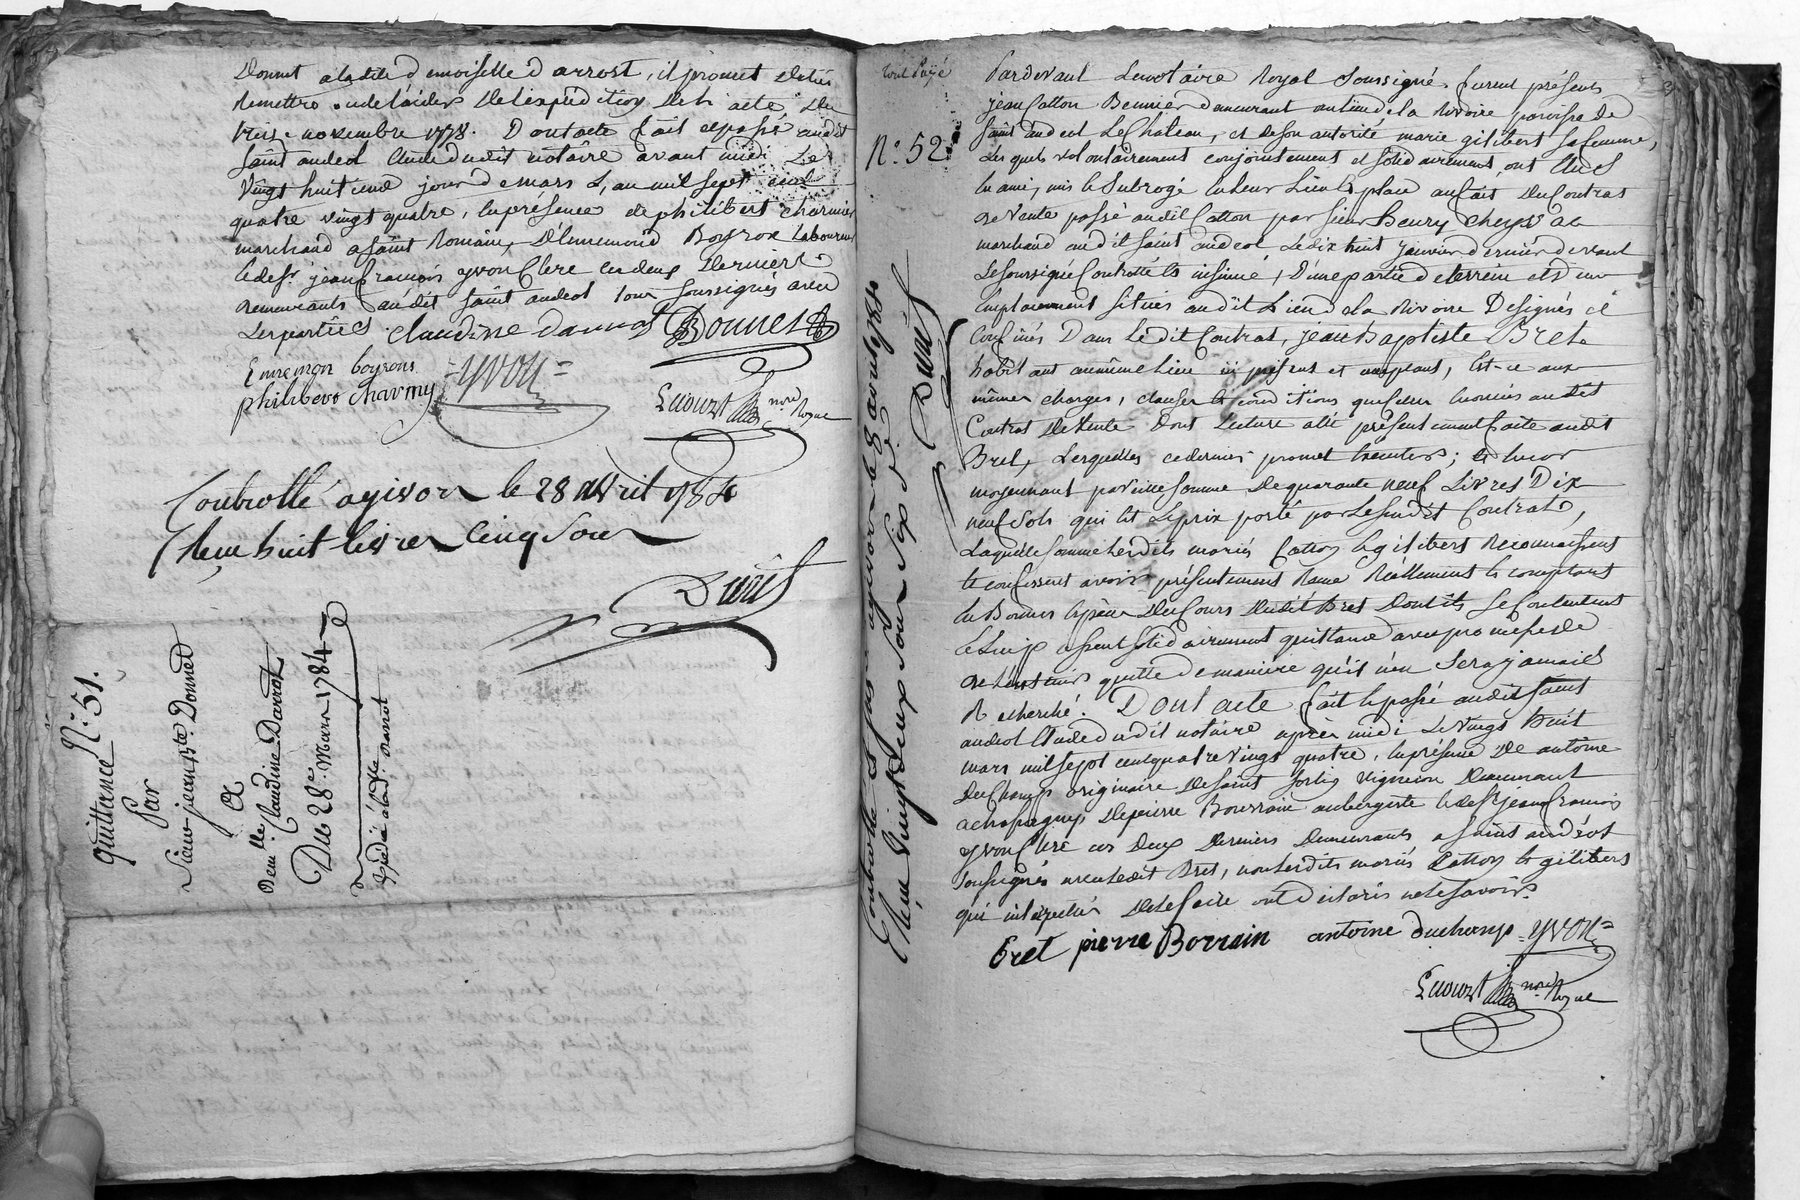 Donnet a ladite demoiselle darrost, il promet
Remettre de l'expedition de l'acte du
trois novembre 1778. Dont acte fait et passé audit
saint andeol étude dudit notaire avant midi Le
Vingt huitieme jour de mars L'an mil sept cent
quatre vingt quatre, en présence de philibert charmier
marchand a saint Romain, D'ennemond Boyron Laboureur
et de sr. jean francois yvon Clerc ces deux Derniers
demeurants audit saint andeol tous soussignés avec
Les parties. claudine darrost Donnet
Ennemon boyron yvon
philibero charmy
nore Royal
Controllé a givors le 28 avril 1784
Reçu huit livres Cinq sous
Durit
N.º 51.
quittance
Par
Sieur jean Bte Donnet
a
Demlle. Claudine Darrost
Du 28e. Mars 1784
Expedié a ladlle darrost
tout Payé
N.º 52
Controllé a givors le 8 avril 1784
Reçu Vingt deux sous six d.
Durit
Pardevant Le notaire Royal Soussigné furent présents
jean Catton Bennier demeurant au lieu de la Rivoire paroisse de
saint andeol Le Chateau, et de son autorité marie gilibert sa femme,
Lesquels volontairement conjointement et solidairement, ont
mis et subrogé en leur Lieu et place au fait du Contrat
de vente passé audit Catton par sieur henry
marchand audit saint andeol Le dix huit janvier dernier devant
Le soussigné Controllé et insinué, D'une partie de terrein et d'un
emplacement situés audit Lieu de la Rivoire Designés et
Confinés Dans Ledit Contrat, jean baptiste Bret
habitant au même Lieu ici présent et acceptant, Est-ce aux
mêmes charges, clauses et conditions que celles énoncées audit
Contrat de vente Dont Lecture a été présentement faite audit
Bret, Lesquelles ce dernier promet executer; et encor
moyennant pareille somme De quarante neuf Livres Dix
neuf Sols qui est Le prix porté par Le susdit Contrat,
Laquelle somme Lesdits mariés Catton et gilibert Reconnaissent
et confessent avoir présentement Reçue Réellement et comptant
en Bonnes espèces Du Cours dudit Bret Dont ils Se Contentent
et Lui passent solidairement quittance avec promesse de
quitte de maniere qu'il n'en Sera jamais
Recherché. Dont acte fait et passé audit saint
andeol Etude dudit notaire après midi Le vingt huit
mars mil sept cent quatre vingt quatre, en présence De antoine
Duchamp originaire De saint vigneron Demeurant
De pierre Bourrain aubergiste et de sr. jean francois
yvon Clerc ces deux Derniers Demeurants a saint andéol
soussignés avec ledit Bret, non lesdits mariés Catton et gilibert
qui interpellés De le faire ont declaré ne le savoir.
Bret pierre Borrain antoine duchamp yvon
nore Royal